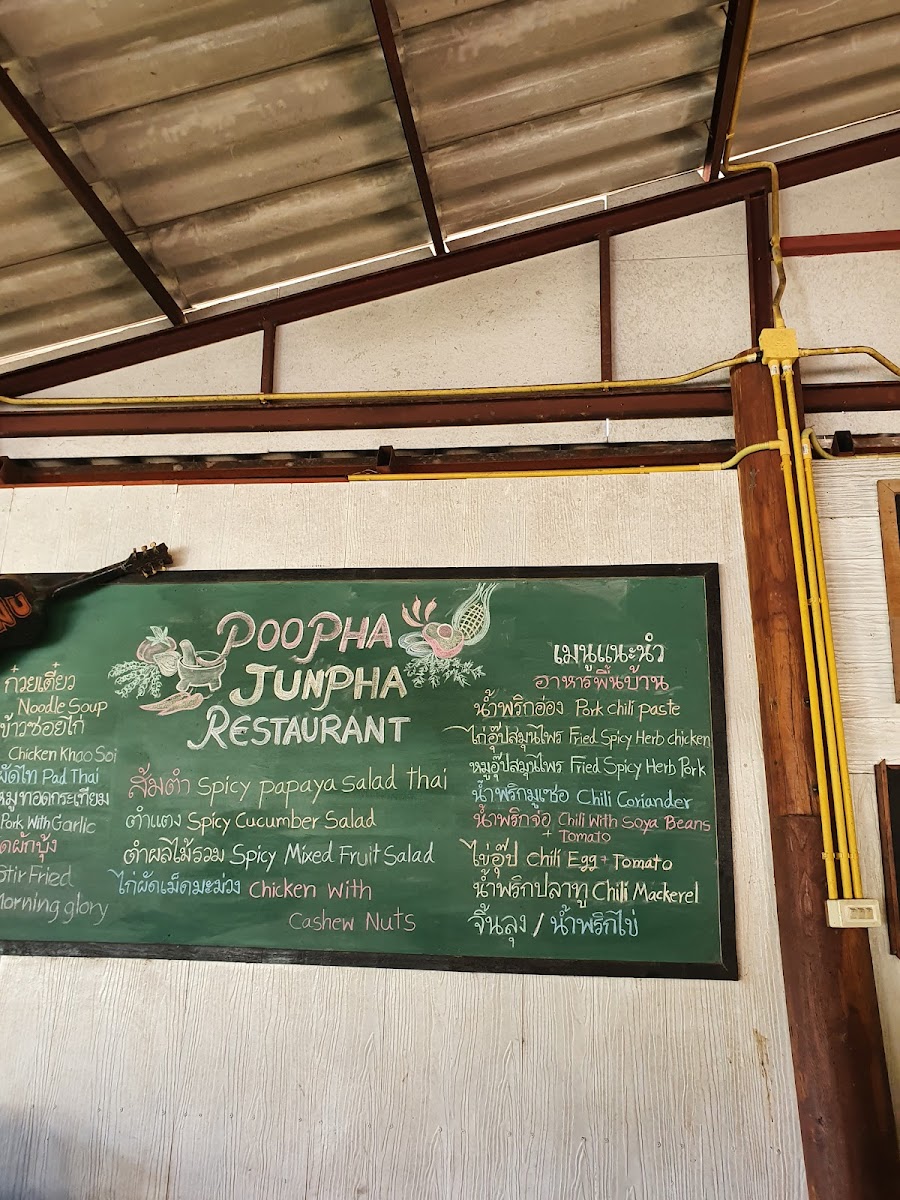 POOPHA
JUNPHA
RESTAURANT
NU
ก๋วยเตี๋ยว
Noodle Soup
ข้าวซอยไก่
Chicken Khao Soi
ผัดไท Pad Thai
หมูทอดกระเทียม
Pork With Garlic
ผักบุ้ง
Stir Fried
Morning glory
ส้มตำ Spicy papaya Salad thai
ตำแตง Spicy Cucumber Salad
ตำผลไม้รวม Spicy Mixed Fruit Salad
ไก่ผัดเม็ดมะม่วง Chicken With
Cashew Nuts
เมนูแนะนำ
อาหารพื้นบ้าน
น้ำพริกอ่อง Pork chili paste
ไก่อุ๊ปสมุนไพร Fried Spicy Herb chicken
หมูอุ๊ปสมุนไพร Fried Spicy Herb Pork
น้ำพริกมูเซอ Chili Coriander
น้ำพริกจ่อ Chili With Soya Beans
+ Tomato
ไข่อุ๊ป Chili Egg + Tomato
น้ำพริกปลาทู Chili Mackerel
จิ้นลุง / น้ำพริกไข่